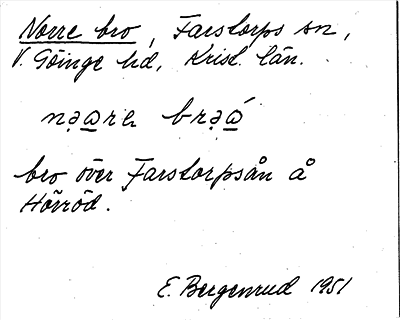 Norre bro, Farstorps sn,
V. Göinge hd, Krist. län.
nạω̲rɐ brạώ̲
bro över Farstorpsån å
Hövröd.
E. Bergenrud 1951